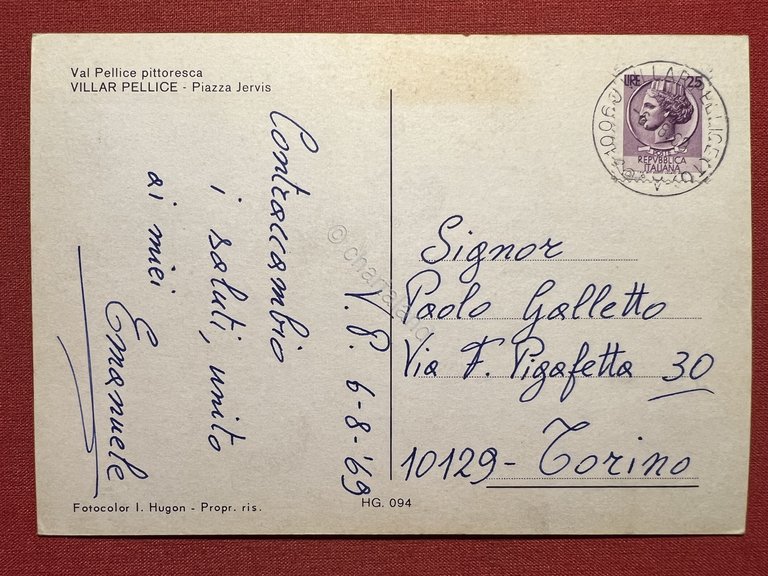 Val Pellice pittoresca
VILLAR PELLICE - Piazza Jervis
V. P. 6-8-'69
Contraccambio
i saluti, unito
ai miei
Emanuele
LIRE 25
REPVBBLICA
ITALIANA
10060 VILLAR PELLICE (TO)
Signor
Paolo Galletto
Via F. Pigafetta 30
10129 - Torino
Fotocolor I. Hugon - Propr. ris.
HG. 094